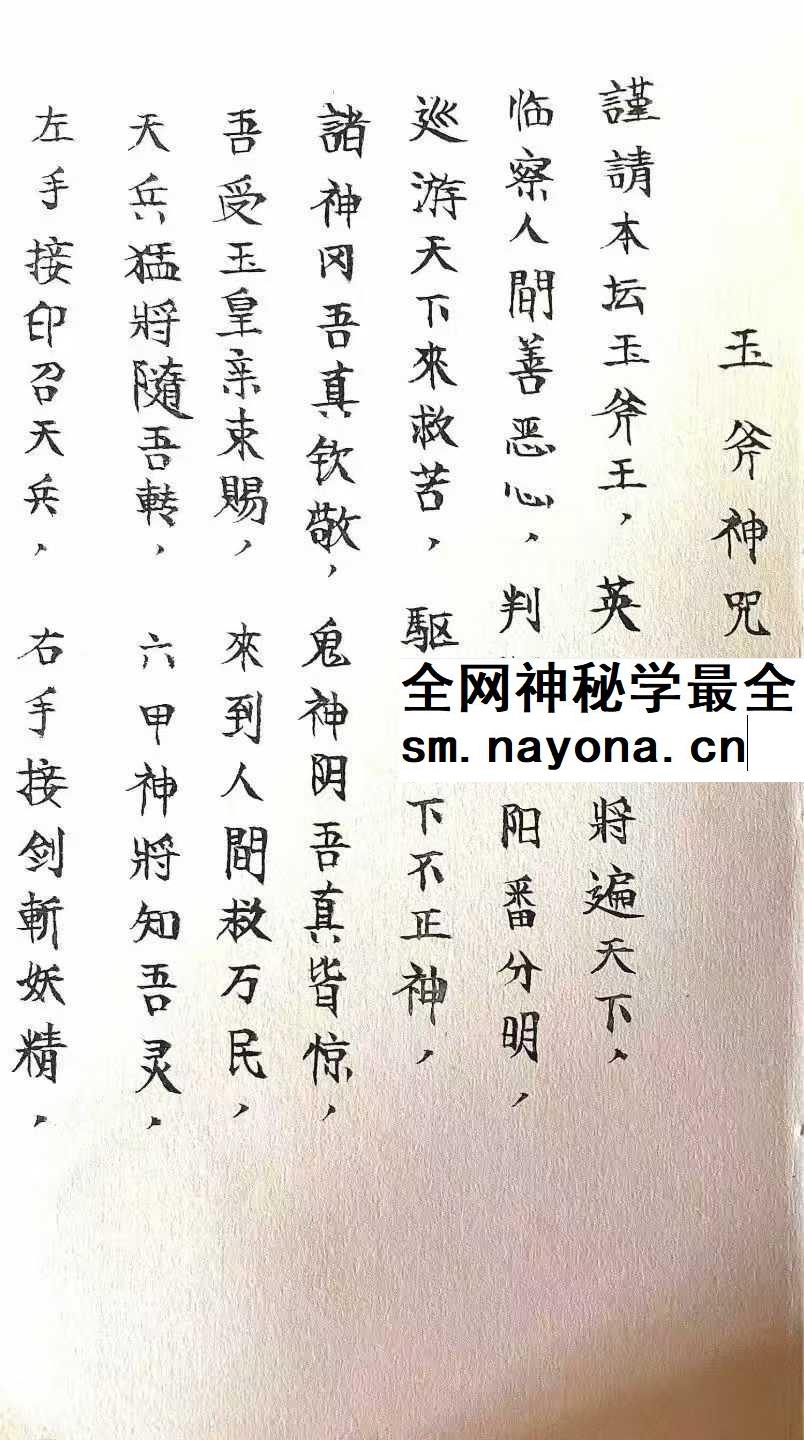 玉斧神咒
謹請本坛玉斧王，英將遍天下，
临察人間善恶心，判阳番分明，
巡游天下來救苦，駆下不正神，
諸神冈吾真钦敬，鬼神阴吾真皆惊，
吾受玉皇亲束賜，來到人間救万民，
天兵猛將隨吾轉，六甲神將知吾灵，
左手接印召天兵，右手接剑斬妖精，
全网神秘学最全
sm.nayona.cn